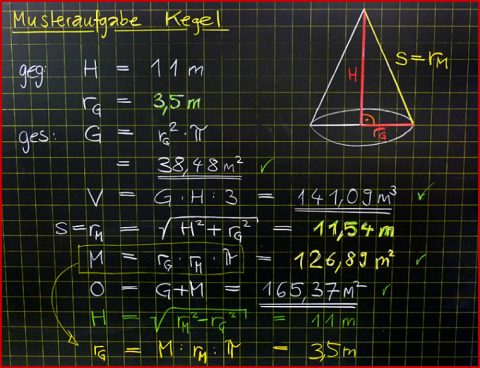 Musteraufgabe Kegel
geg: H = 11 m
r_G = 3,5 m
ges: G = r_G² · π
= 38,48 m² ✓
V = G · H : 3 = 141,09 m³ ✓
S = r_M = √(H² + r_G²) = 11,54 m
M = r_G · r_M · π = 126,89 m² ✓
O = G + M = 165,37 m² ✓
H = √(r_M² - r_G²) = 11 m
r_G = M : r_M : π = 3,5 m
S = r_M
H
r_G